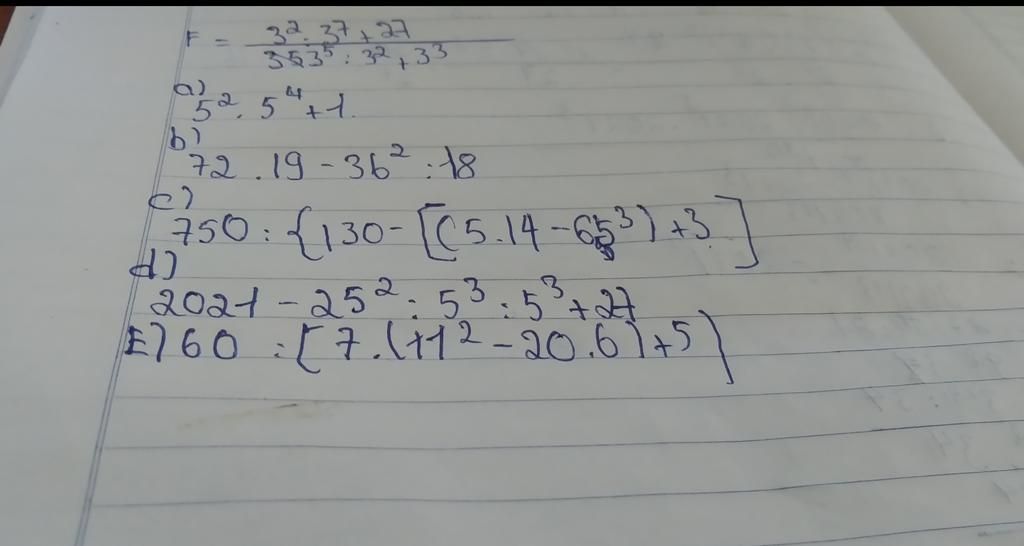 F = 3² . 3⁷ + 27
3⁵ : 3² + 3³
a)
5² . 5⁴ + 1.
b)
72 . 19 - 36² : 18
c)
750 : { 130 - [( 5.14 - 65³ ) + 3 ]
d)
2021 - 25² : 5³ : 5³ + 27
E) 60 : [ 7 . ( 11² - 20 . 6 ) + 5 ]